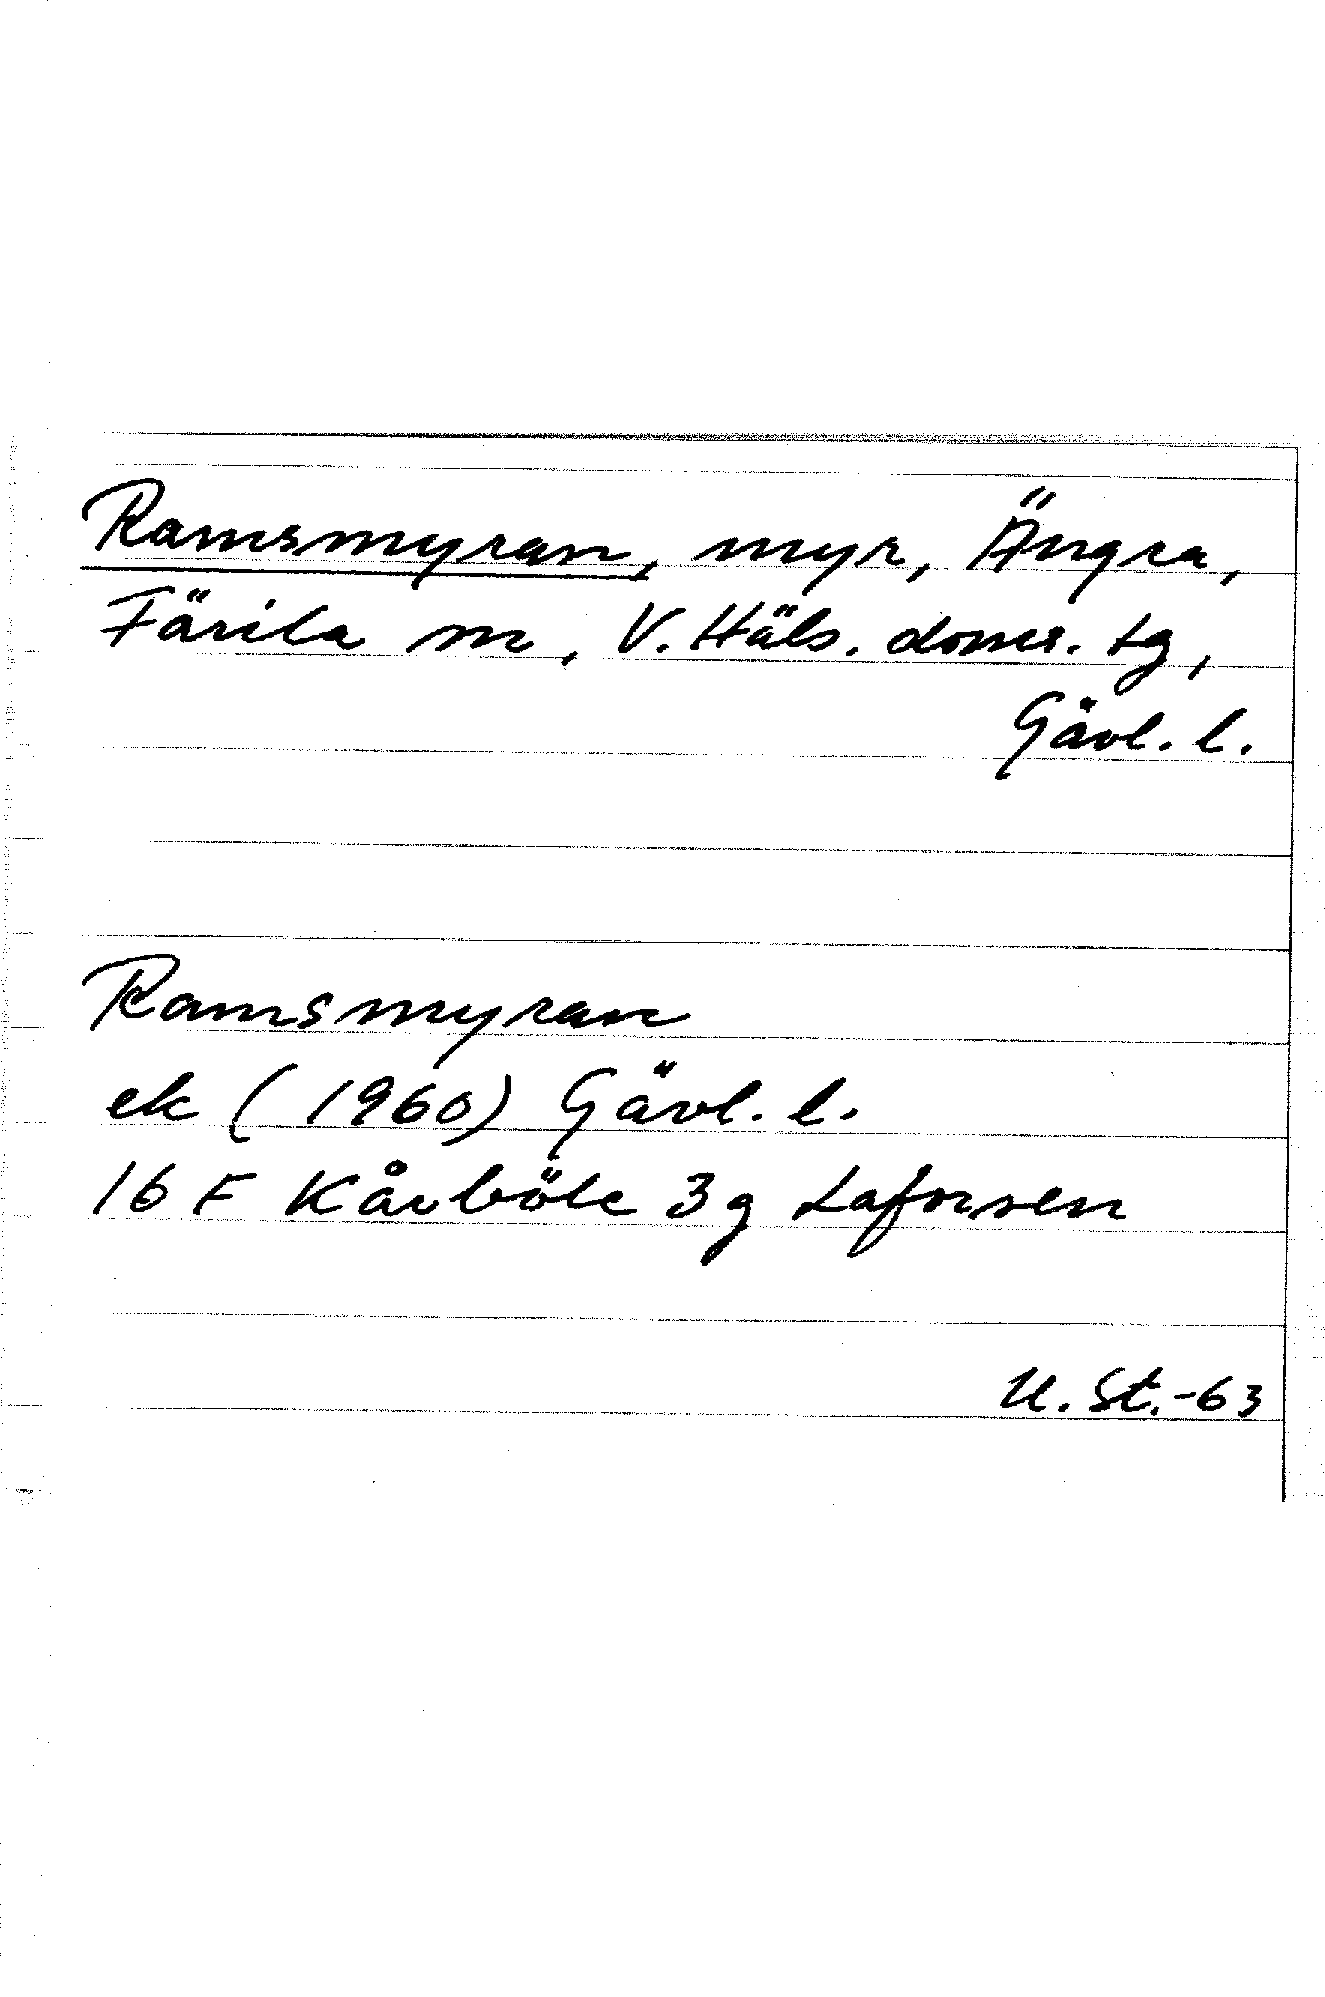 Ramsmyran, myr, Ängra,
Färila sn, V. Häls. doms. tg,
Gävl. l.
Ramsmyran
ek (1960) Gävl. l.
16 F Kårböle 3 g Laforsen
U. St.-63